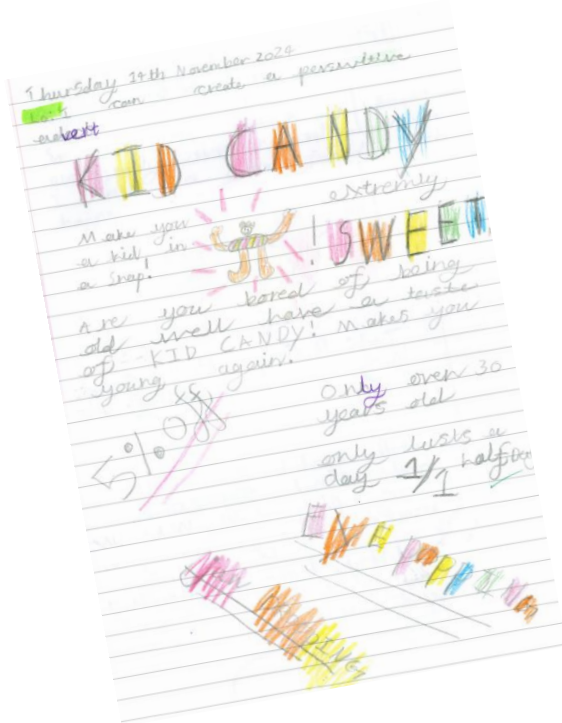 Thursday 14th November 2024
LO: I can create a persuasive
advert
KID CANDY
Make you
a kid in
a snap!
extremly
! SWEET
Are you bored of being
old well have a taste
of KID CANDY! Makes you
young again.
5% off
Only over 30
years old
only lasts a
day 1/1 half Day
AMAZING